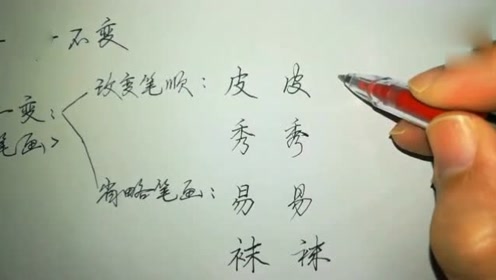 一不变
一变：
改变笔顺：皮 皮
秀 秀
笔画>
省略笔画：易 易
袜 袜